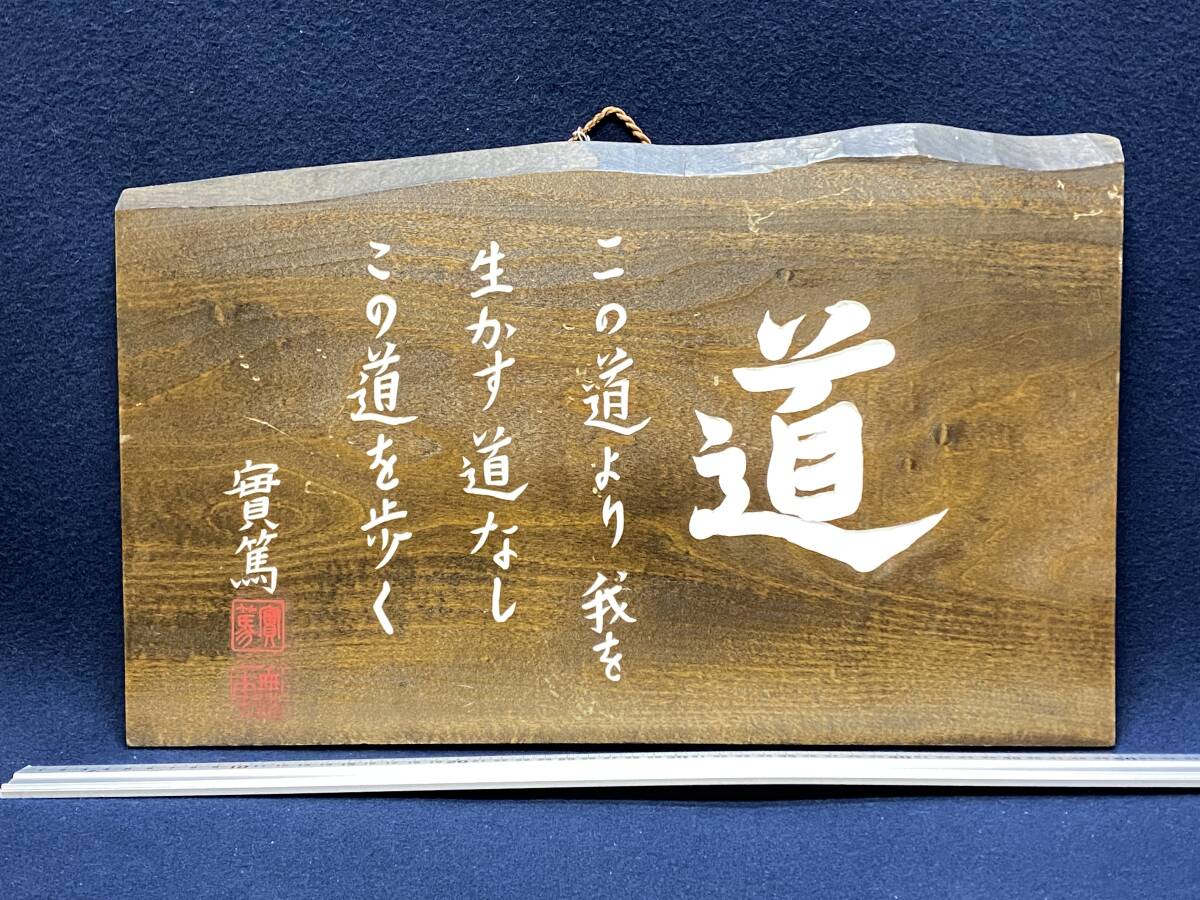 道
この道より我を
生かす道なし
この道を歩く
實篤
實篤